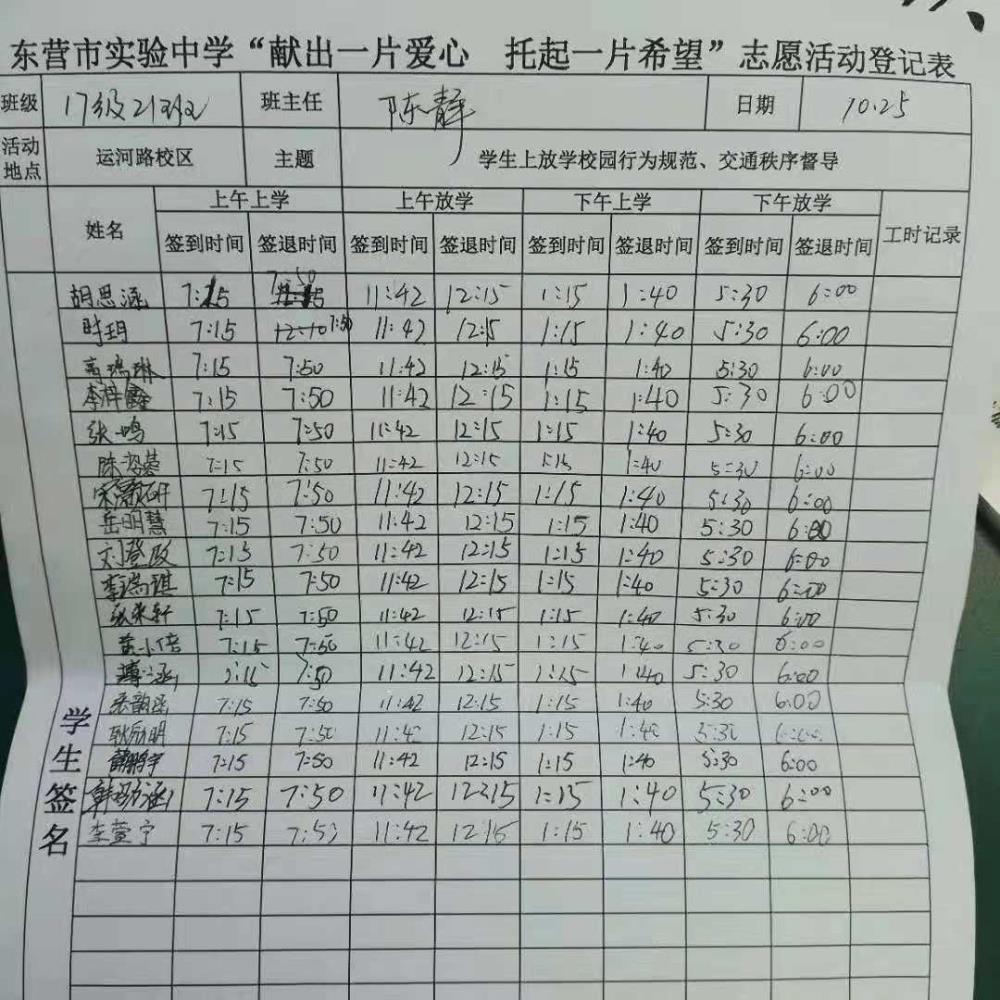 东营市实验中学“献出一片爱心 托起一片希望”志愿活动登记表
班级 17级21班 班主任 陈静 日期 10.25
活动地点 运河路校区 主题 学生上放学校园行为规范、交通秩序督导
姓名 上午上学 上午放学 下午上学 下午放学 工时记录
签到时间 签退时间 签到时间 签退时间 签到时间 签退时间 签到时间 签退时间
胡思涵 7:15 7:50 11:42 12:15 1:15 1:40 5:30 6:00
时玥 7:15 7:50 11:42 12:15 1:15 1:40 5:30 6:00
高瑞琳 7:15 7:50 11:42 12:15 1:15 1:40 5:30 6:00
李梓鑫 7:15 7:50 11:42 12:15 1:15 1:40 5:30 6:00
张鸣 7:15 7:50 11:42 12:15 1:15 1:40 5:30 6:00
7:15 7:50 11:42 12:15 1:15 1:40 5:30 6:00
7:15 7:50 11:42 12:15 1:15 1:40 5:30 6:00
岳明慧 7:15 7:50 11:42 12:15 1:15 1:40 5:30 6:00
刘登政 7:15 7:50 11:42 12:15 1:15 1:40 5:30 6:00
李瑞琪 7:15 7:50 11:42 12:15 1:15 1:40 5:30 6:00
7:15 7:50 11:42 12:15 1:15 1:40 5:30 6:00
黄小倍 7:15 7:50 11:42 12:15 1:15 1:40 5:30 6:00
7:15 7:50 11:42 12:15 1:15 1:40 5:30 6:00
7:15 7:50 11:42 12:15 1:15 1:40 5:30 6:00
7:15 7:50 11:42 12:15 1:15 1:40 5:30 6:00
7:15 7:50 11:42 12:15 1:15 1:40 5:30 6:00
7:15 7:50 11:42 12:15 1:15 1:40 5:30 6:00
李萱宁 7:15 7:50 11:42 12:15 1:15 1:40 5:30 6:00
学生签名